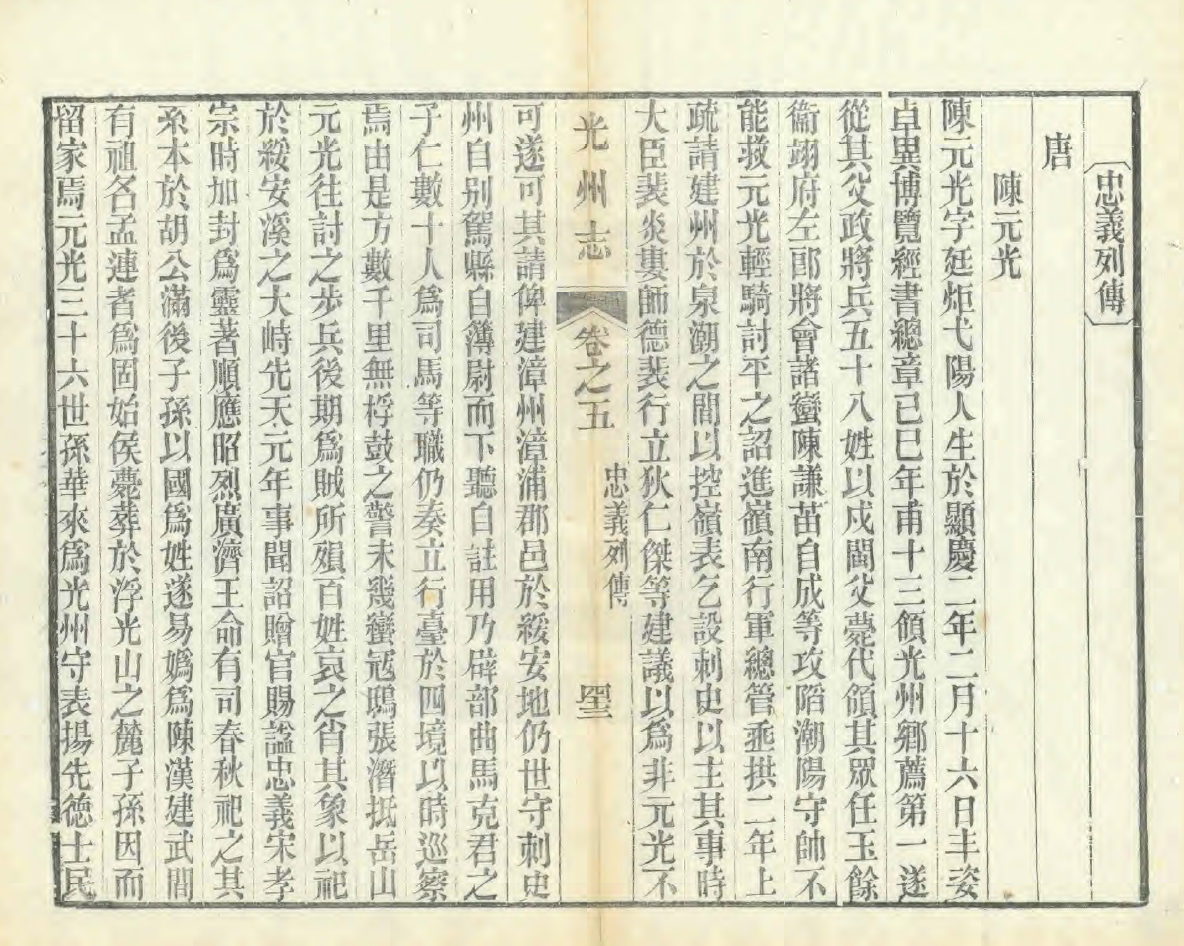 忠義列傳
唐
陳元光
陳元光字廷炬弋陽人生於顯慶二年二月十六日丰姿
卓異博覽經書總章己巳年甫十三領光州鄉薦第一遂
從其父政將兵五十八姓以戍閩父薨代領其眾任玉鈐
衛翊府左郎將會諸蠻陳謙苗自成等攻陷潮陽守帥不
能救元光輕騎討平之詔進嶺南行軍總管垂拱二年上
疏請建州於泉潮之間以控嶺表乞設刺史以主其事時
大臣裴炎婁師德裴行立狄仁傑等建議以為非元光不
光州志
卷之五
忠義列傳
可遂可其請俾建漳州漳浦郡邑於綏安地仍世守刺史
州自別駕縣自簿尉而下聽自註用乃辟部曲馬克君之
子仁數十人為司馬等職仍奏立行臺於四境以時巡察
焉由是方數千里無桴鼓之警未幾蠻冦鴟張潛抵岳山
元光往討之步兵後期為賊所殞百姓哀之肖其象以祀
於綏安溪之大峙先天元年事聞詔贈官賜謚忠義宋孝
宗時加封為靈著順應昭烈廣濟王命有司春秋祀之其
系本於胡公滿後子孫以國為姓遂易媯為陳漢建武間
有祖名孟連者為固始侯薨葬於浮光山之麓子孫因而
留家焉元光三十六世孫華來為光州守表揚先德士民